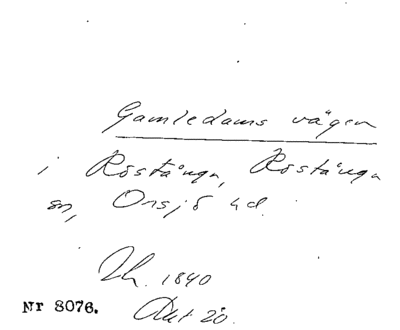 Gamledams vägen
i Röstånga, Röstånga
sn, Onsjö hd.
Th. 1840
Nr 8076. Akt 20.